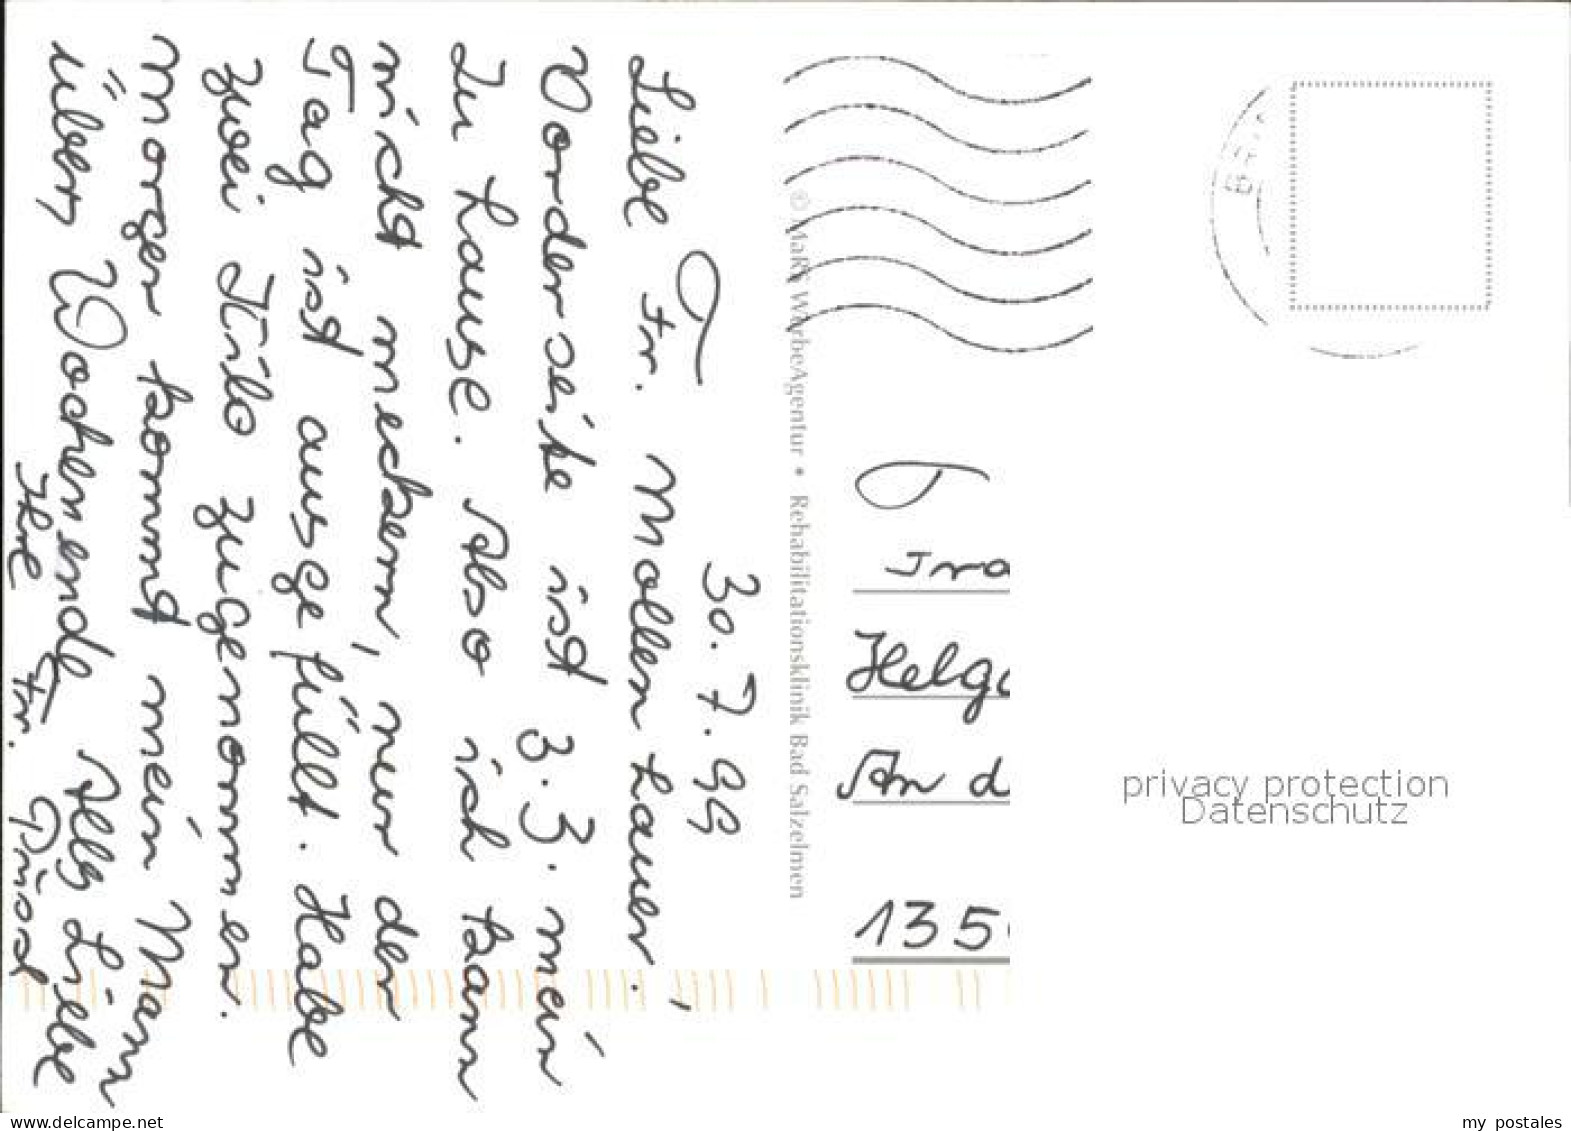 30.7.99
Liebe Fr. Mollenhauer!
Vorderseite ist 3.3. mein
Zu hause. Also ich kann
nicht meckern, nur der
Tag ist ausgefüllt. Habe
zwei Kilo zugenommen.
Morgen kommt mein Mann
übers Wochenende. Alles Liebe
Ihre Fr.
© MaRo WerbeAgentur • Rehabilitationsklinik Bad Salzelmen
Fra
Helga
An d
135
privacy protection
Datenschutz
www.delcampe.net
my_postales